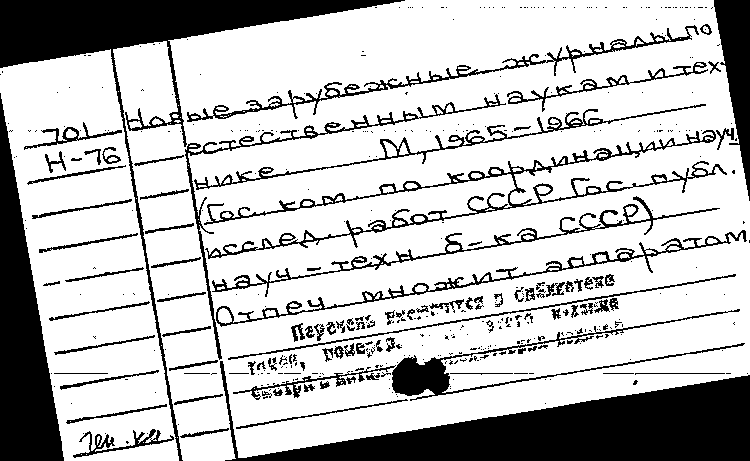 701
Н-76
Новые зарубежные журналы по
естественным наукам и тех-
нике. М, 1965-1966.
(Гос. ком. по координации науч.
исслед. работ СССР Гос. публ.
науч-техн б-ка СССР).
Отпеч. множит. аппаратом.
Перечень имеющихся в библиотеке
томов, номеров. этого издания
смотри в